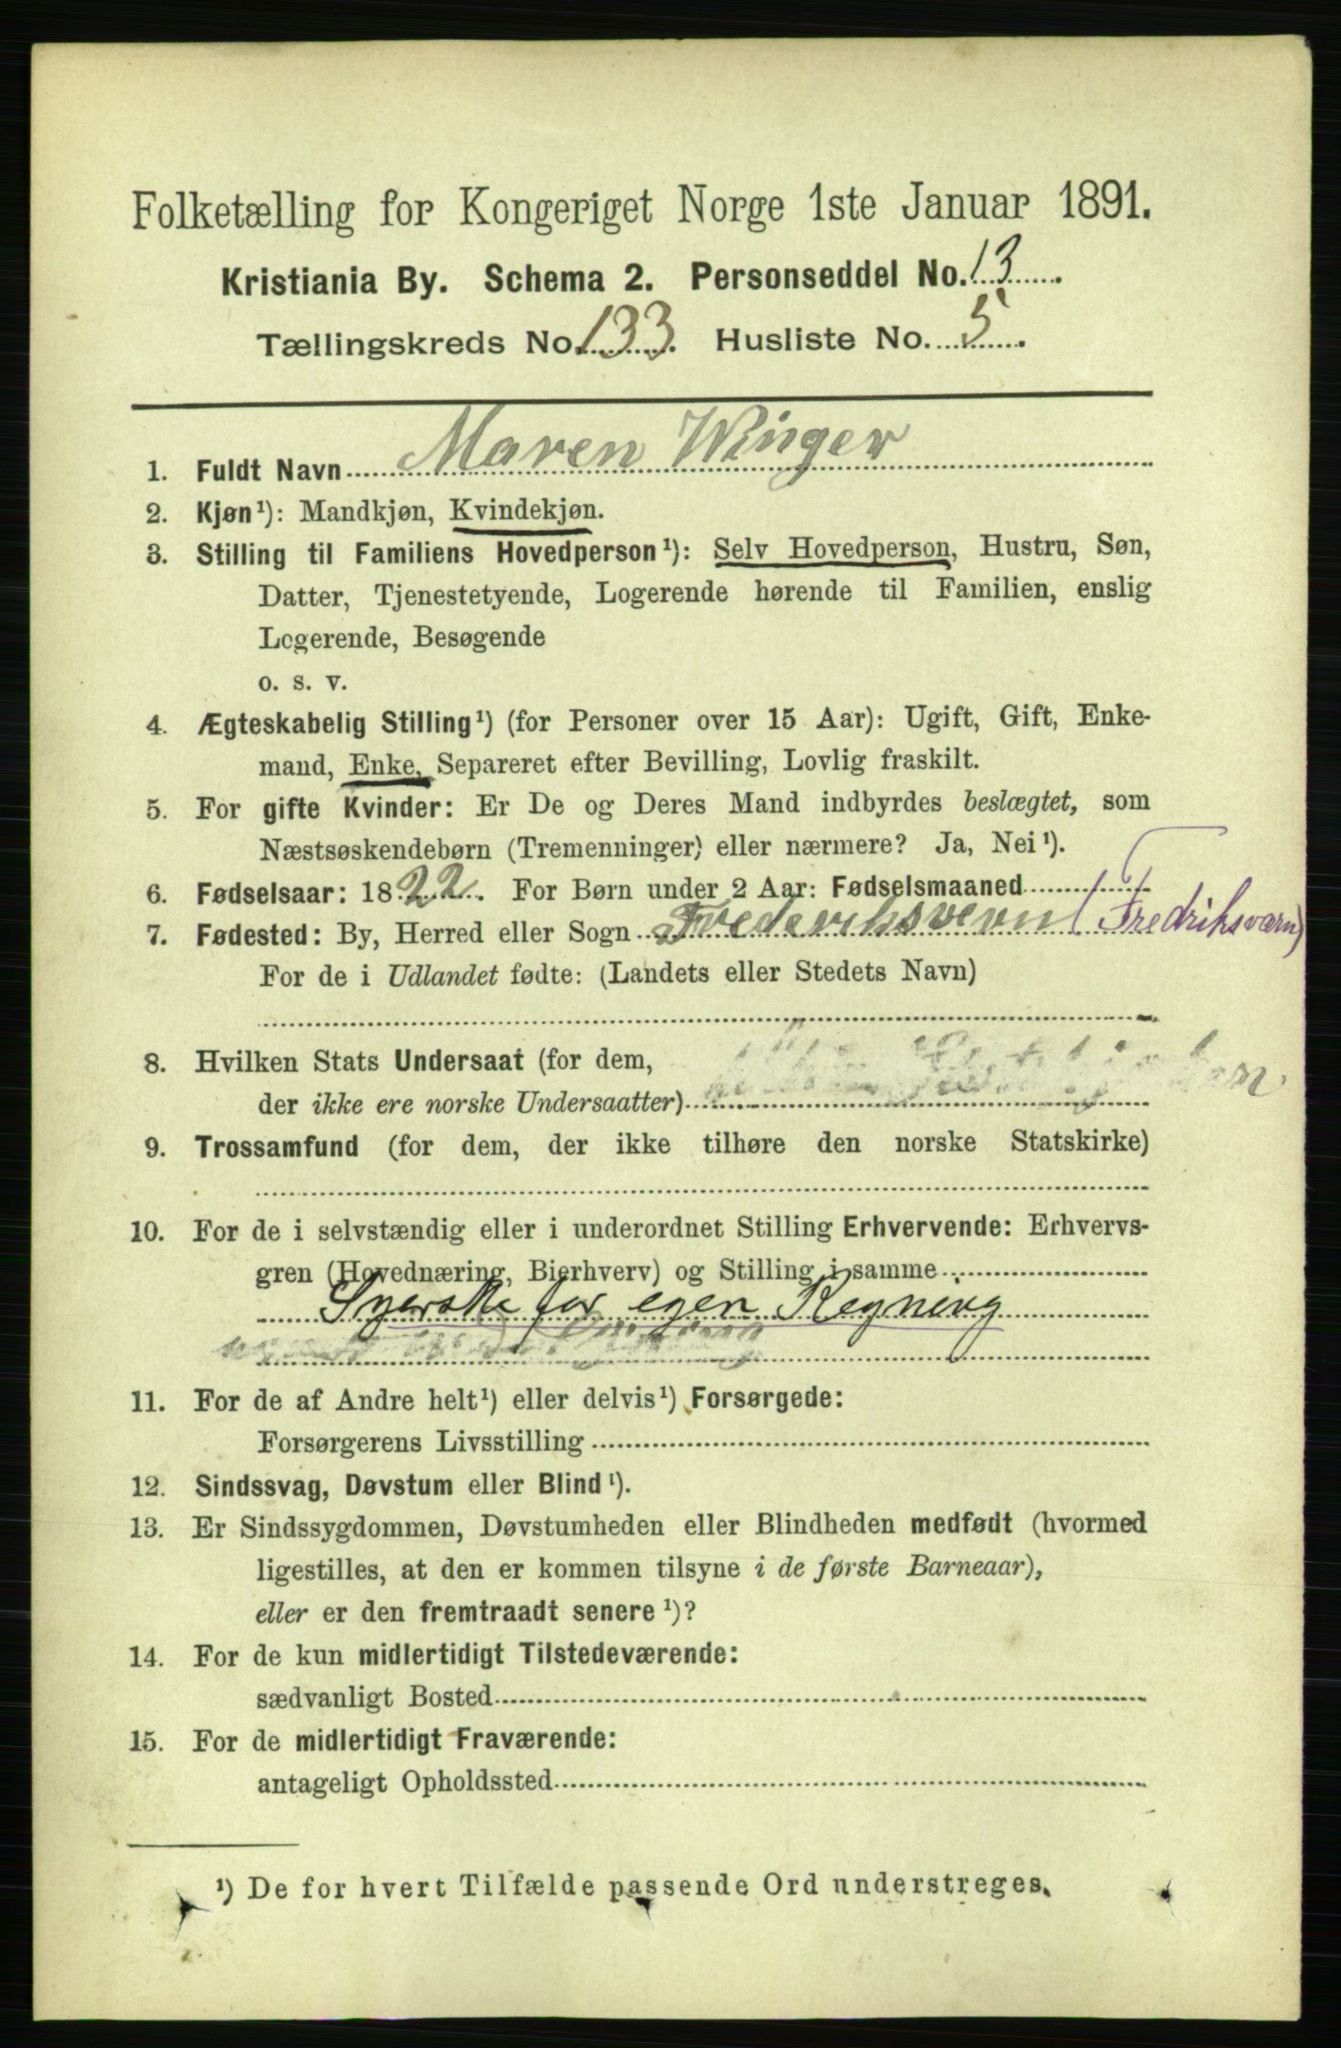 Folketælling for Kongeriget Norge 1ste Januar 1891.
Kristiania By. Schema 2. Personseddel No. 13
Tællingskreds No. 133. Husliste No. 5.
1. Fuldt Navn Maren Winger
2. Kjøn¹): Mandkjøn, Kvindekjøn.
3. Stilling til Familiens Hovedperson¹): Selv Hovedperson, Hustru, Søn,
Datter, Tjenestetyende, Logerende hørende til Familien, enslig
Logerende, Besøgende
o. s. v.
4. Ægteskabelig Stilling¹) (for Personer over 15 Aar): Ugift, Gift, Enke-
mand, Enke, Separeret efter Bevilling, Lovlig fraskilt.
5. For gifte Kvinder: Er De og Deres Mand indbyrdes beslægtet, som
Næstsøskendebørn (Tremenninger) eller nærmere? Ja, Nei¹).
6. Fødselsaar: 1822. For Børn under 2 Aar: Fødselsmaaned
7. Fødested: By, Herred eller Sogn Frederiksvern (Fredriksværn)
For de i Udlandet fødte: (Landets eller Stedets Navn)
8. Hvilken Stats Undersaat (for dem,
der ikke ere norske Undersaatter)
9. Trossamfund (for dem, der ikke tilhøre den norske Statskirke)
10. For de i selvstændig eller i underordnet Stilling Erhvervende: Erhvervs-
gren (Hovednæring, Bierhverv) og Stilling i samme
Syerske for egen Regning
11. For de af Andre helt¹) eller delvis¹) Forsørgede:
Forsørgerens Livsstilling
12. Sindssvag, Døvstum eller Blind¹).
13. Er Sindssygdommen, Døvstumheden eller Blindheden medfødt (hvormed
ligestilles, at den er kommen tilsyne i de første Barneaar),
eller er den fremtraadt senere¹)?
14. For de kun midlertidigt Tilstedeværende:
sædvanligt Bosted
15. For de midlertidigt Fraværende:
antageligt Opholdssted
¹) De for hvert Tilfælde passende Ord understreges.